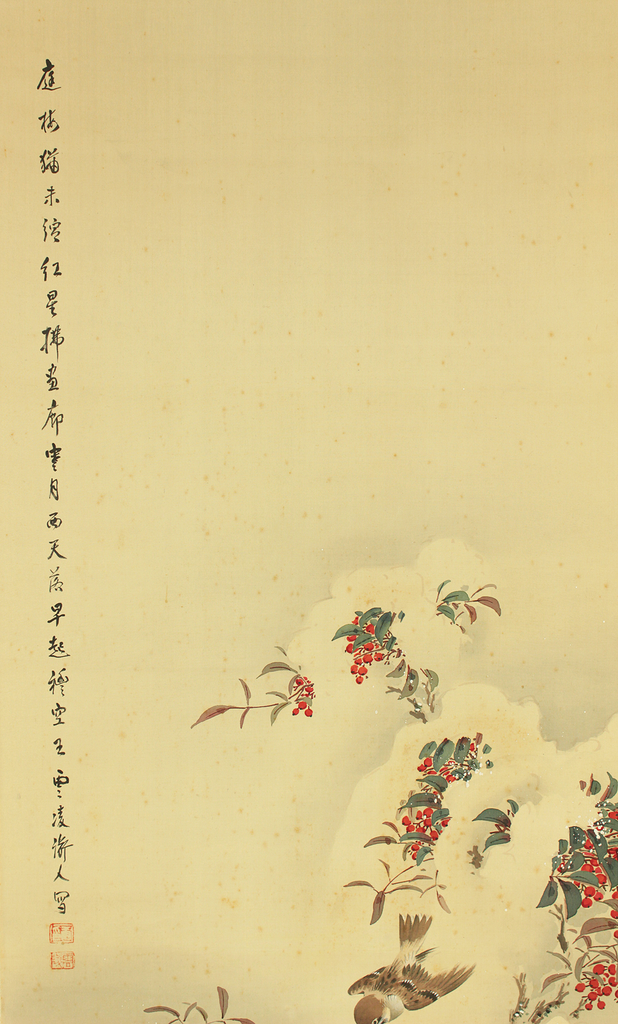 庭梅猶未綻紅星拂畫廊寒月西天落早起穆空王雲凌漪人寫